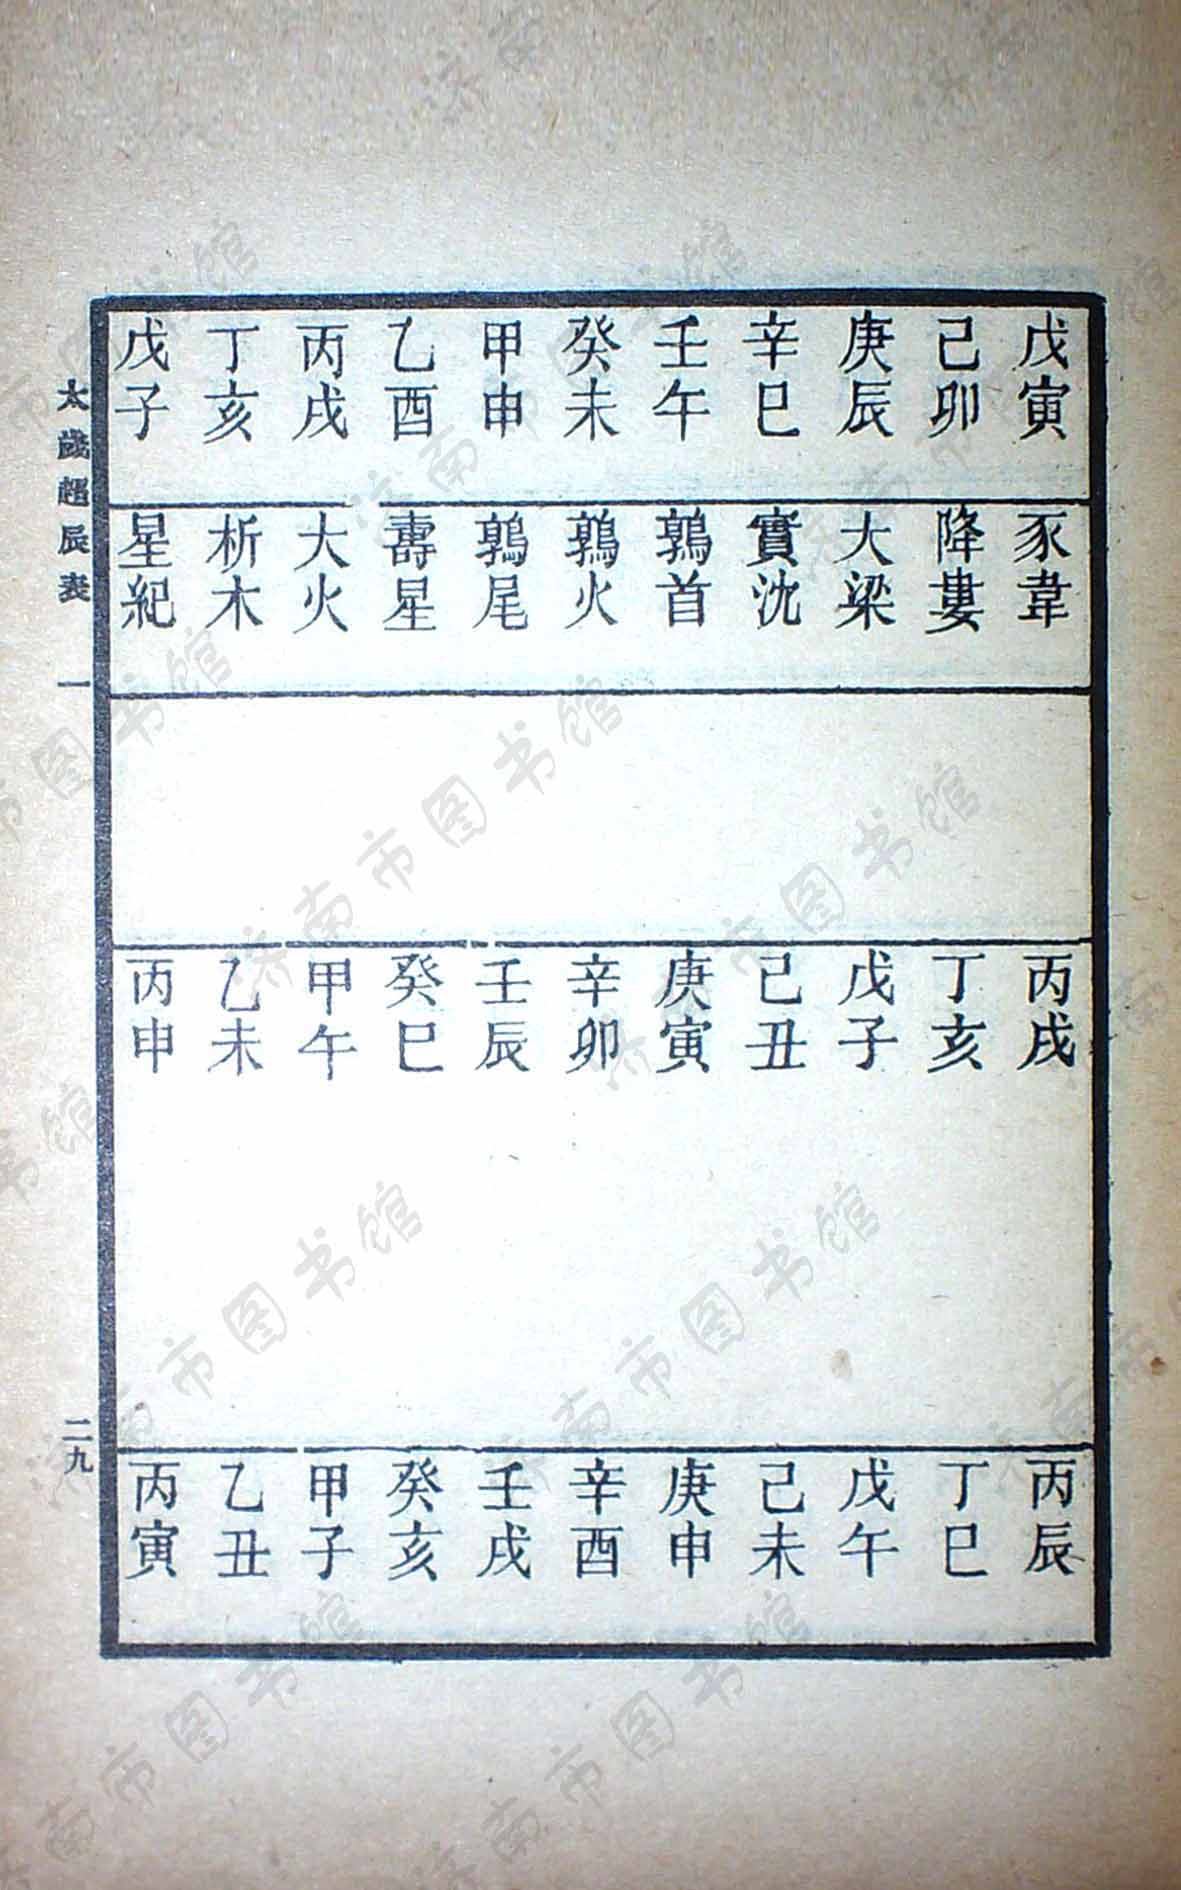 戊寅 豕韋 丙戌 丙辰
己卯 降婁 丁亥 丁巳
庚辰 大梁 戊子 戊午
辛巳 實沈 己丑 己未
壬午 鶉首 庚寅 庚申
癸未 鶉火 辛卯 辛酉
甲申 鶉尾 壬辰 壬戌
乙酉 壽星 癸巳 癸亥
丙戌 大火 甲午 甲子
丁亥 析木 乙未 乙丑
戊子 星紀 丙申 丙寅
太歲超辰表 一 二九
济南市图书馆